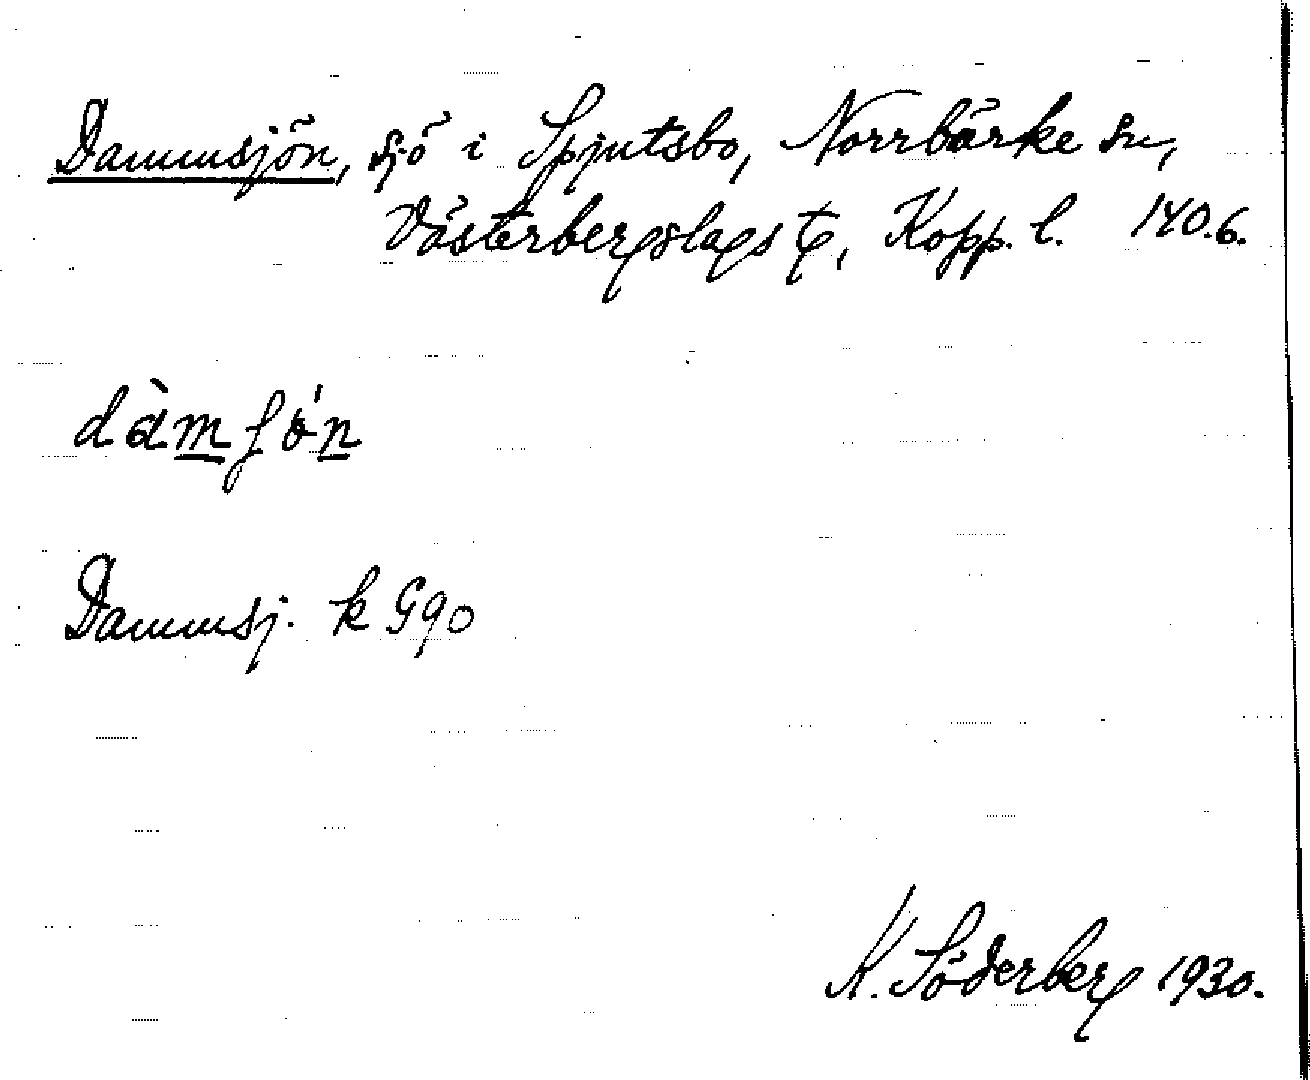 Dammsjön, sjö i Spjutsbo, Norrbärke sn,
Västerbergslags tg, Kopp. l. 140.6.
dàmʃón
Dammsj. k G90
K. Söderberg 1930.